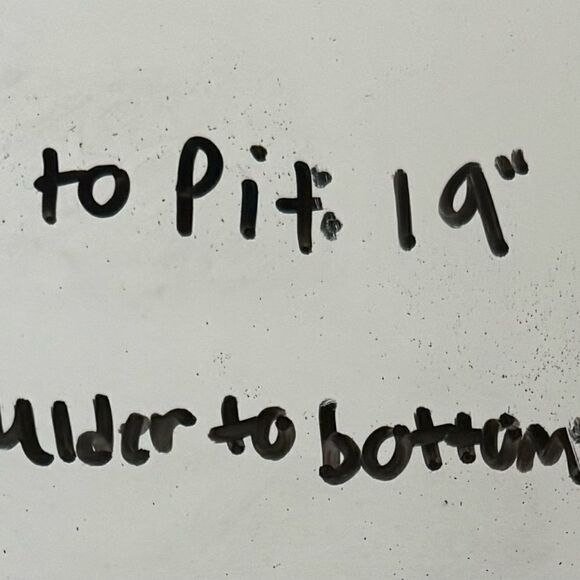 to Pit: 19"
ulder to bottom